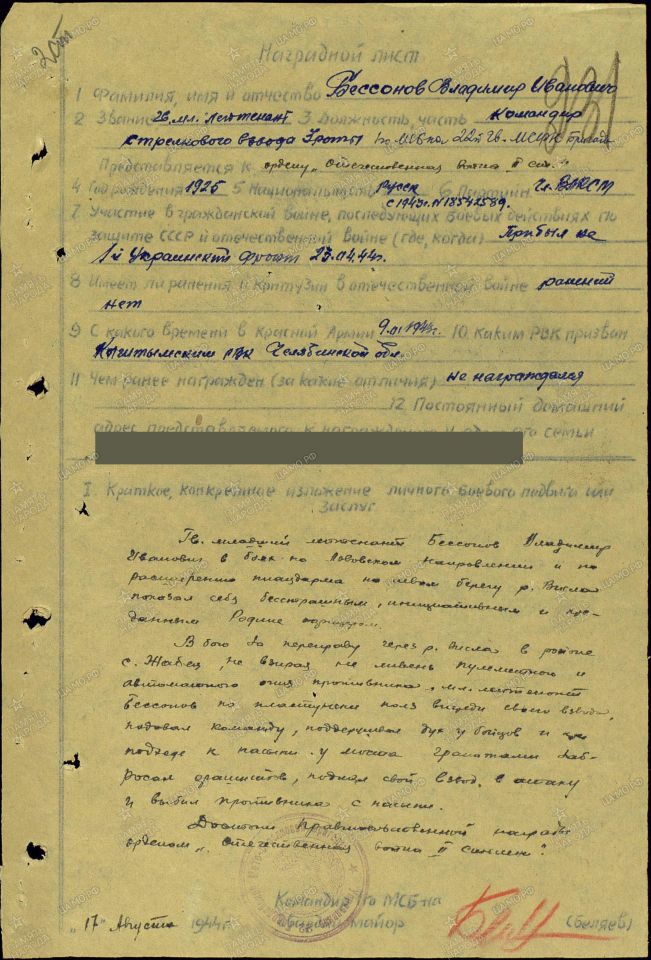 Наградной лист
1 Фамилия, имя и отчество Бессонов Владимир Иванович
2 Звание Гв. мл. лейтенант 3. Должность, часть Командир
стрелкового взвода роты 1го МСБ-на 22й Гв. МСРК бригады
Представляется к ордену "Отечественная война II ст."
4 Год рождения 1925 5 Национальность Русск 6 Партийн. чл. ВЛКСМ
с 1943г. N18542589.
7 Участие в гражданской войне, последующих боевых действиях по
защите СССР и отечественной войне (где, когда) Прибыл на
1й Украинский фронт 23.04.44г.
8 Имеет ли ранения и контузии в отечественной войне ранений
нет
9 С какого времени в Красной Армии 10. Каким РВК призван
Кыштымским РВК Челябинской обл.
11 Чем ранее награжден (за какие отличия) не награждался
12 Постоянный домашний
адрес представляемого к награждению и адрес его семьи
I. Краткое, конкретное изложение личного боевого подвига или
заслуг
Гв. младший лейтенант Бессонов Владимир
Иванович в боях на Львовском направлении и по
расширению плацдарма на левом берегу р. Висла
показал себя бесстрашным, инициативным и пре-
данным Родине офицером.
В бою за переправу через р. Висла в районе
с. не взирая на ливень пулеметного и
автоматного огня противника, мл. лейтенант
Бессонов по пластунски полз впереди своего взвода,
подавал команду, поддерживал дух у бойцов и при
подходе к насыпи у моста гранатами заб-
росал фашистов, поднял свой взвод в атаку
и выбил противника с насыпи.
Достоин Правительственной награды
орденом "Отечественная война II степени".
Командир 1го МСБ-на
гвардии майор (Беляев)
"17" Августа 1944г.
ЦАМО.РФ
ПАМЯТЬ НАРОДА